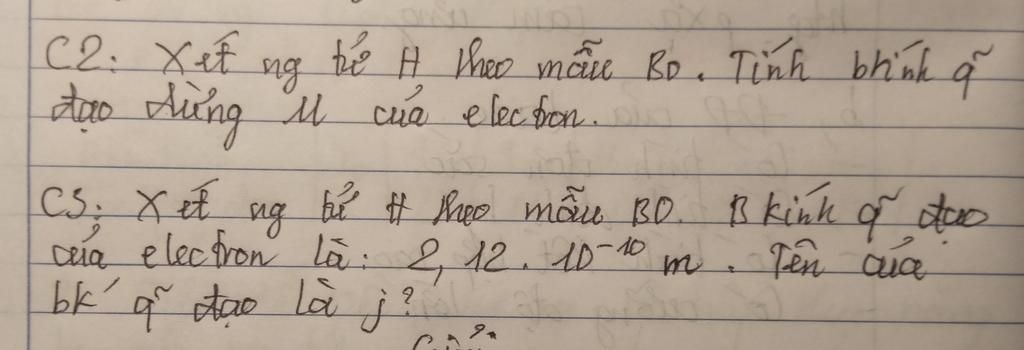 C2: Xét ng tử H theo mẫu BO. Tính bkính q̃
đạo dừng M của electron.
C3: Xét ng tử H theo mẫu BO. B kính q̃ đạo
của electron là: 2,12.10⁻¹⁰ m. Tên của
bk´ q̃ đạo là j?